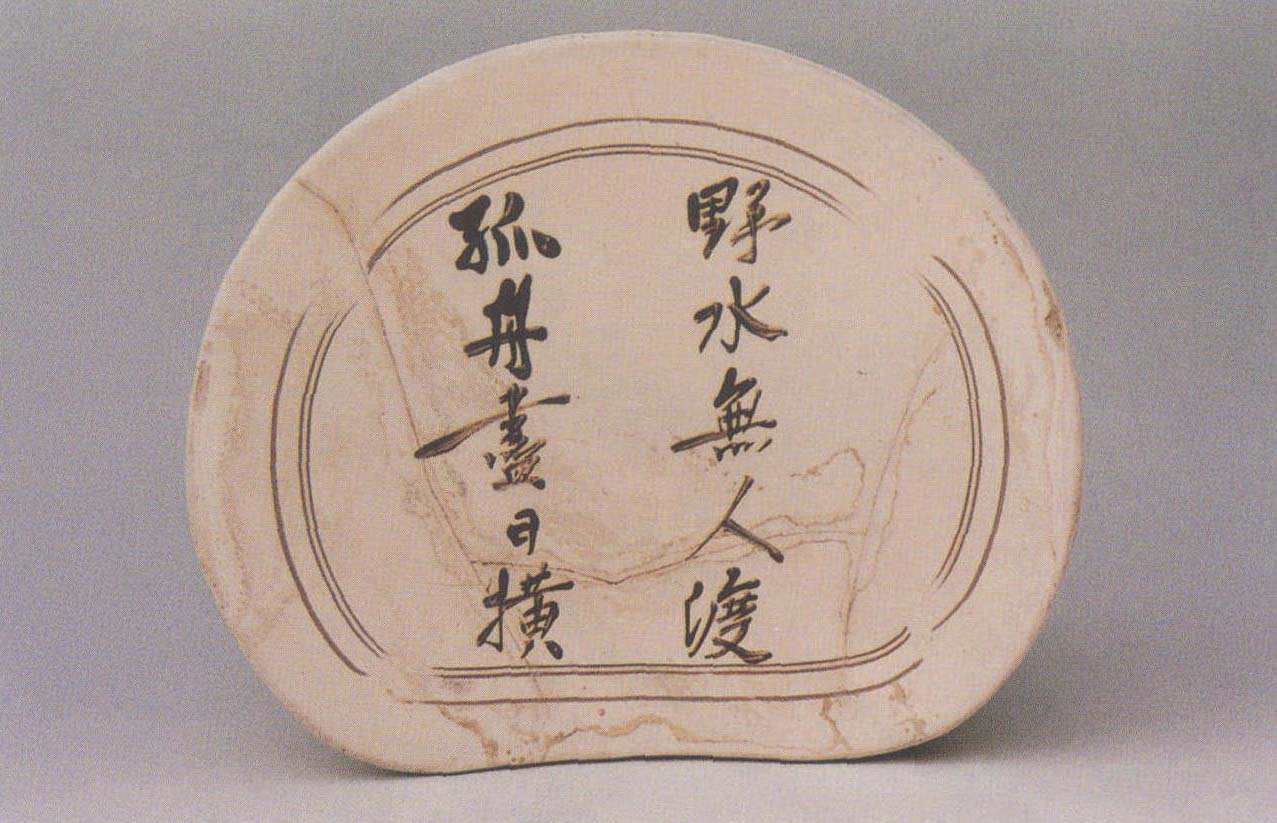 野水無人渡
孤舟盡日横